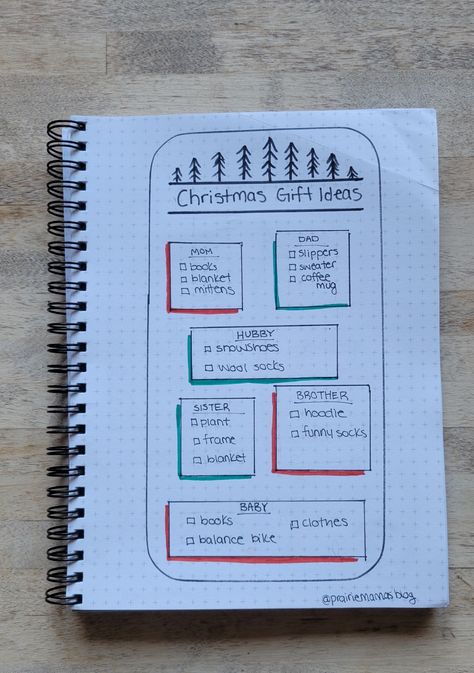 Christmas Gift Ideas
MOM
books
blanket
mittens
DAD
slippers
sweater
coffee
mug
HUBBY
snowshoes
wool socks
SISTER
plant
frame
blanket
BROTHER
hoodie
funny socks
BABY
books
clothes
balance bike
@prairiemamasblog